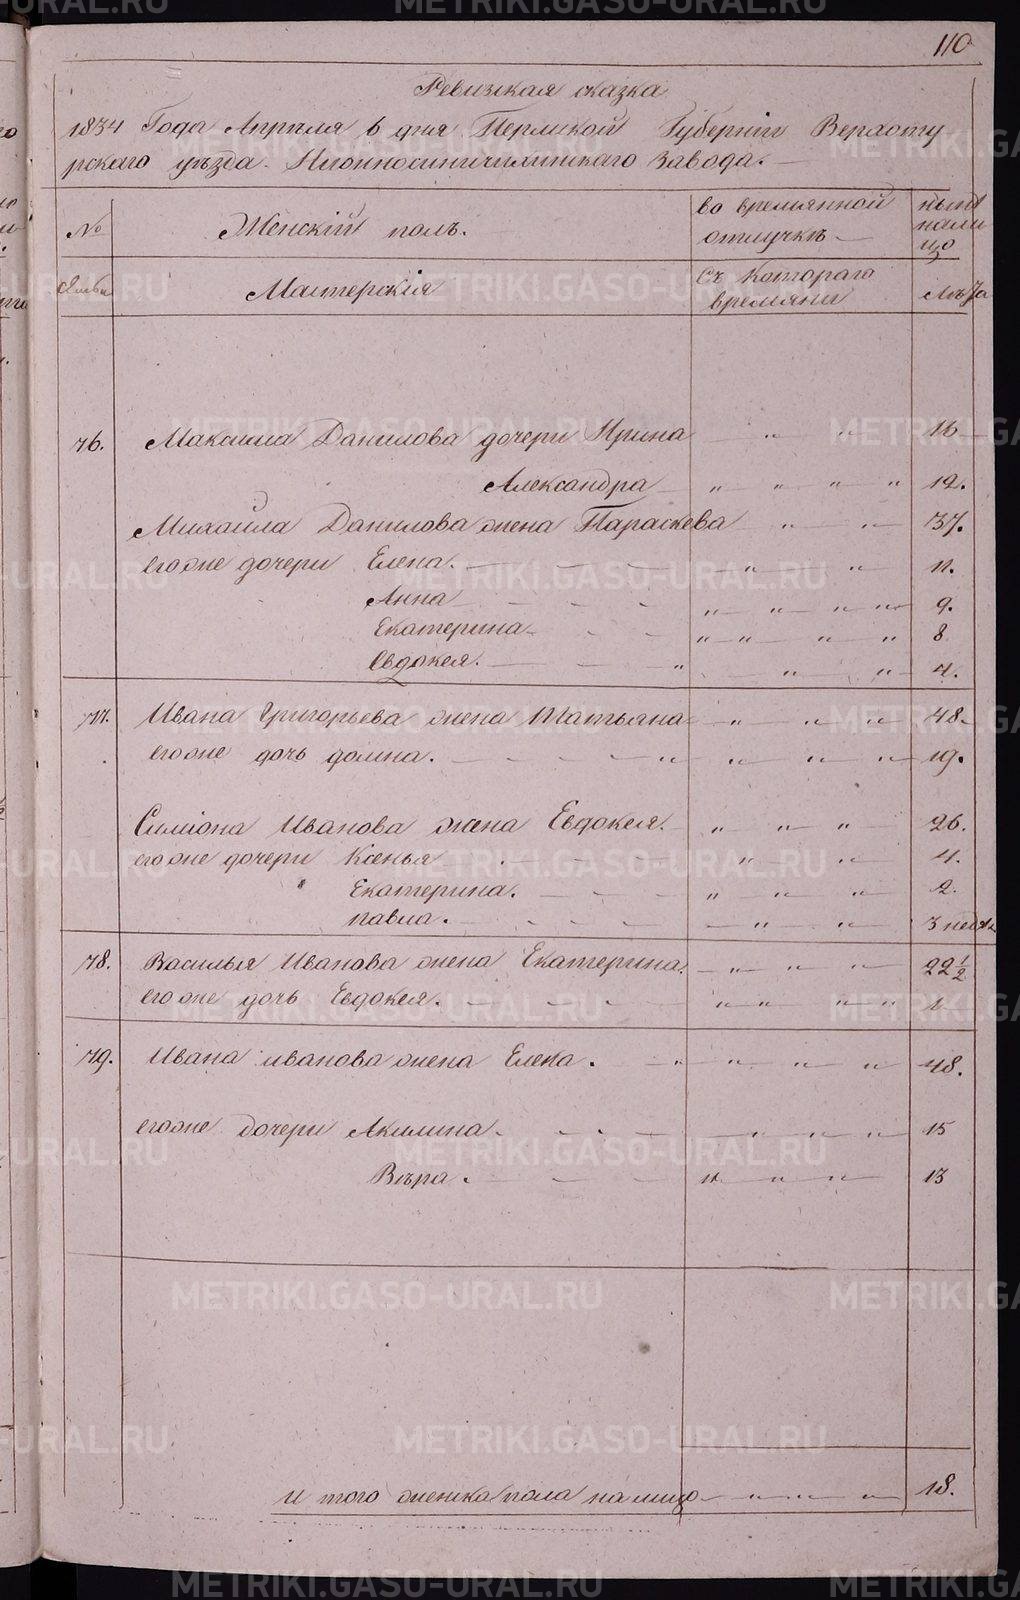 110
Ревизская сказка
1834 Года Апреля 6 дня Пермской Губернiи Верхоту
рского уезда Завода.
№ Женскiй полъ. во времянной отлучкѣ ныне налицо
Мастерскiя Съ Котораго времяни лѣта
76. Максима Данилова дочери Ирина 16
Александра 12.
Михаила Данилова жена Параскева 37.
его же дочери Елена. 11.
Анна 9.
Екатерина 8
Евдокея. 4.
77. Ивана Григорьева жена Татьяна 48.
его же дочь домна. 19.
Симiона Иванова жена Евдокея. 26.
его же дочери Ксенья 4.
Екатерина. 2.
павла. 3 недел
78. Василья Иванова жена Екатерина. 22 1/2
его же дочь Евдокея. 1
79. Ивана иванова жена Елена. 48.
его же дочери Акилина. 15
Вѣра. 13
и того женска пола налицо 18.
METRIKI.GASO-URAL.RU